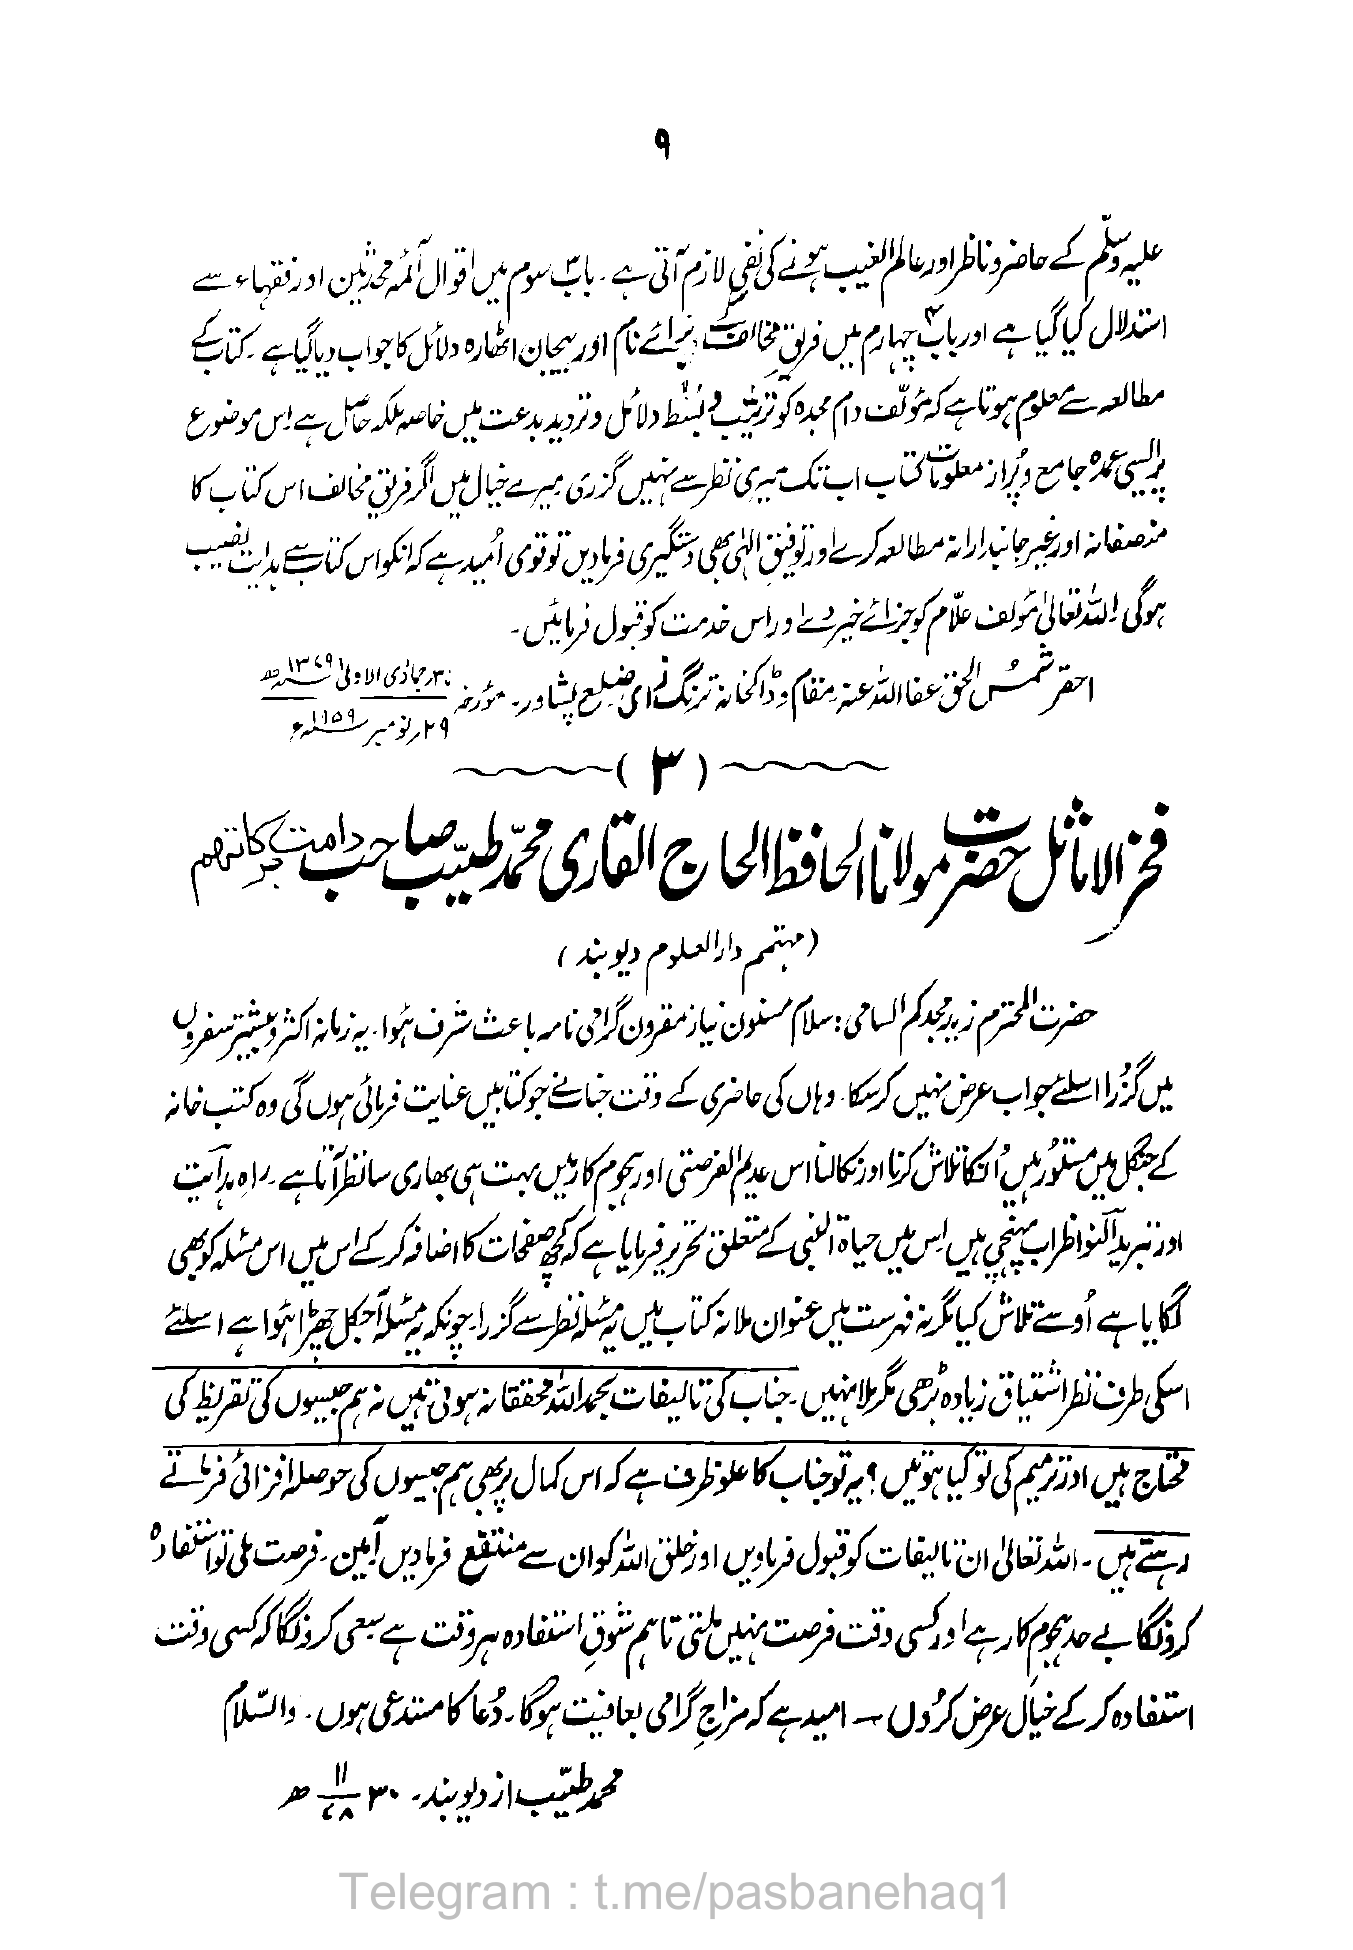 ۹
علیہ وسلّم کے حاضر و ناظر اور عالم الغیب ہونے کی نفی لازم آتی ہے۔ باب سوم میں اقوال آئمہ محدثین اور فقہاء سے
استدلال کیا گیا ہے اور باب چہارم میں فریقِ مخالف کے برائے نام اور بیجان اٹھارہ دلائل کا جواب دیا گیا ہے۔ کتاب کے
مطالعہ سے معلوم ہوتا ہے کہ مؤلّف دام مجدہ کو ترتیب و بسط دلائل و تردید بدعت میں خاصہ ملکہ حاصل ہے اس موضوع
پر ایسی عمدہ جامع و پُر از معلومات کتاب اب تک میری نظر سے نہیں گزری میرے خیال میں اگر فریقِ مخالف اس کتاب کا
منصفانہ اور غیر جانبدارانہ مطالعہ کرے اور توفیقِ الٰہی بھی دستگیری فرمادیں تو قوی اُمید ہے کہ انکو اس کتاب سے ہدایت نصیب
ہوگی اللہ تعالیٰ مؤلف علّام کو جزائے خیر دے اور اس خدمت کو قبول فرمائیں۔
احقر شمس الحق عفا اللہ عنہ مقام و ڈاکخانہ ترنگ زئی ضلع پشاور۔ مؤرخہ ۳۰ جمادی الاولیٰ ۱۳۷۹ھ
۲۹ نومبر ۱۹۵۹ء
(۳)
فخر الاماثل حضرت مولانا الحافظ الحاج القاری محمّد طیّب صاحب دامت برکاتہم
(مہتمم دارالعلوم دیوبند)
حضرت المحترم زید مجدکم السامی: سلام مسنون نیاز مقرون گرامی نامہ باعث شرف ہُوا۔ یہ زمانہ اکثر و بیشتر سفروں
میں گزُرا اسلئے جواب عرض نہیں کر سکا۔ وہاں کی حاضری کے وقت جناب نے جو کتابیں عنایت فرمائی ہوں گی وہ کتب خانہ
کے جنگل میں مستور ہیں اُنکا تلاش کرنا اور نکالنا اس عدیم الفرصتی اور ہجوم کار میں بہت ہی بھاری سا نظر آتا ہے۔ راہِ ہدایت
اور تبرید النواظر اب پہنچی ہیں اِس میں حیاۃ النبی کے متعلق تحریر فرمایا ہے کہ کچھ صفحات کا اضافہ کر کے اس میں اس مسئلہ کو بھی
لگایا ہے اُوسے تلاش کیا مگر نہ فہرست میں عنوان ملا نہ کتاب میں یہ مسئلہ نظر سے گزرا۔ چونکہ یہ مسئلہ آجکل چھڑا ہُوا ہے اسلئے
اسکی طرف نظرِ اشتیاق زیادہ بڑھی مگر ملا نہیں۔ جناب کی تالیفات بحمد اللہ محققانہ ہوتی ہیں نہ ہم جیسوں کی تقریظ کی
محتاج ہیں اور ترمیم کی تو کیا ہوتیں؟ یہ تو جناب کا علو ظرف ہے کہ اس کمال پر بھی ہم جیسوں کی حوصلہ افزائی فرماتے
رہتے ہیں۔ اللہ تعالیٰ ان تالیفات کو قبول فرماویں اور خلق اللہ کو ان سے منتفع فرمادیں آمین۔ فرصت ملی تو استفادہ
کرونگا بے حد ہجوم کار ہے اور کسی وقت فرصت نہیں ملتی تاہم شوقِ استفادہ ہر وقت ہے سعی کرونگا کہ کسی وقت
استفادہ کر کے خیال عرض کردُوں — امید ہے کہ مزاجِ گرامی بعافیت ہوگا۔ دُعا کا مستدعی ہوں۔ والسّلام
محمد طیّب از دیوبند۔ ۳۰ ۱۱/۷۸ ھ
Telegram : t.me/pasbanehaq1